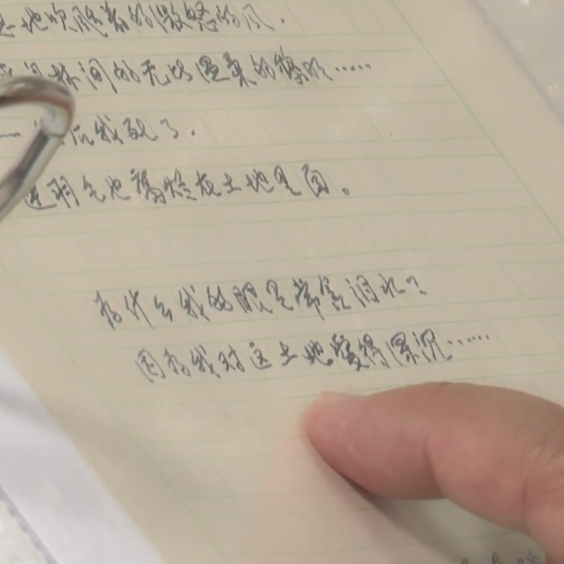 地吹刮着的激怒的风，
林间的无比温柔的黎明……
我死了，
连羽毛也腐烂在土地里面。
为什么我的眼里常含泪水？
因为我对这土地爱得深沉……